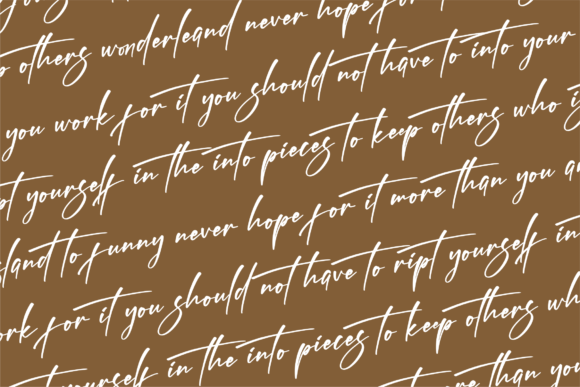 p others wonderleand never hope for
you work for it you should not have to into your
pt yourself in the into pieces to keep others who i
sland to funny never hope for it more than you a
ork for it you should not have to ript yourself in
yourself in the into pieces to keep others wh
more than you